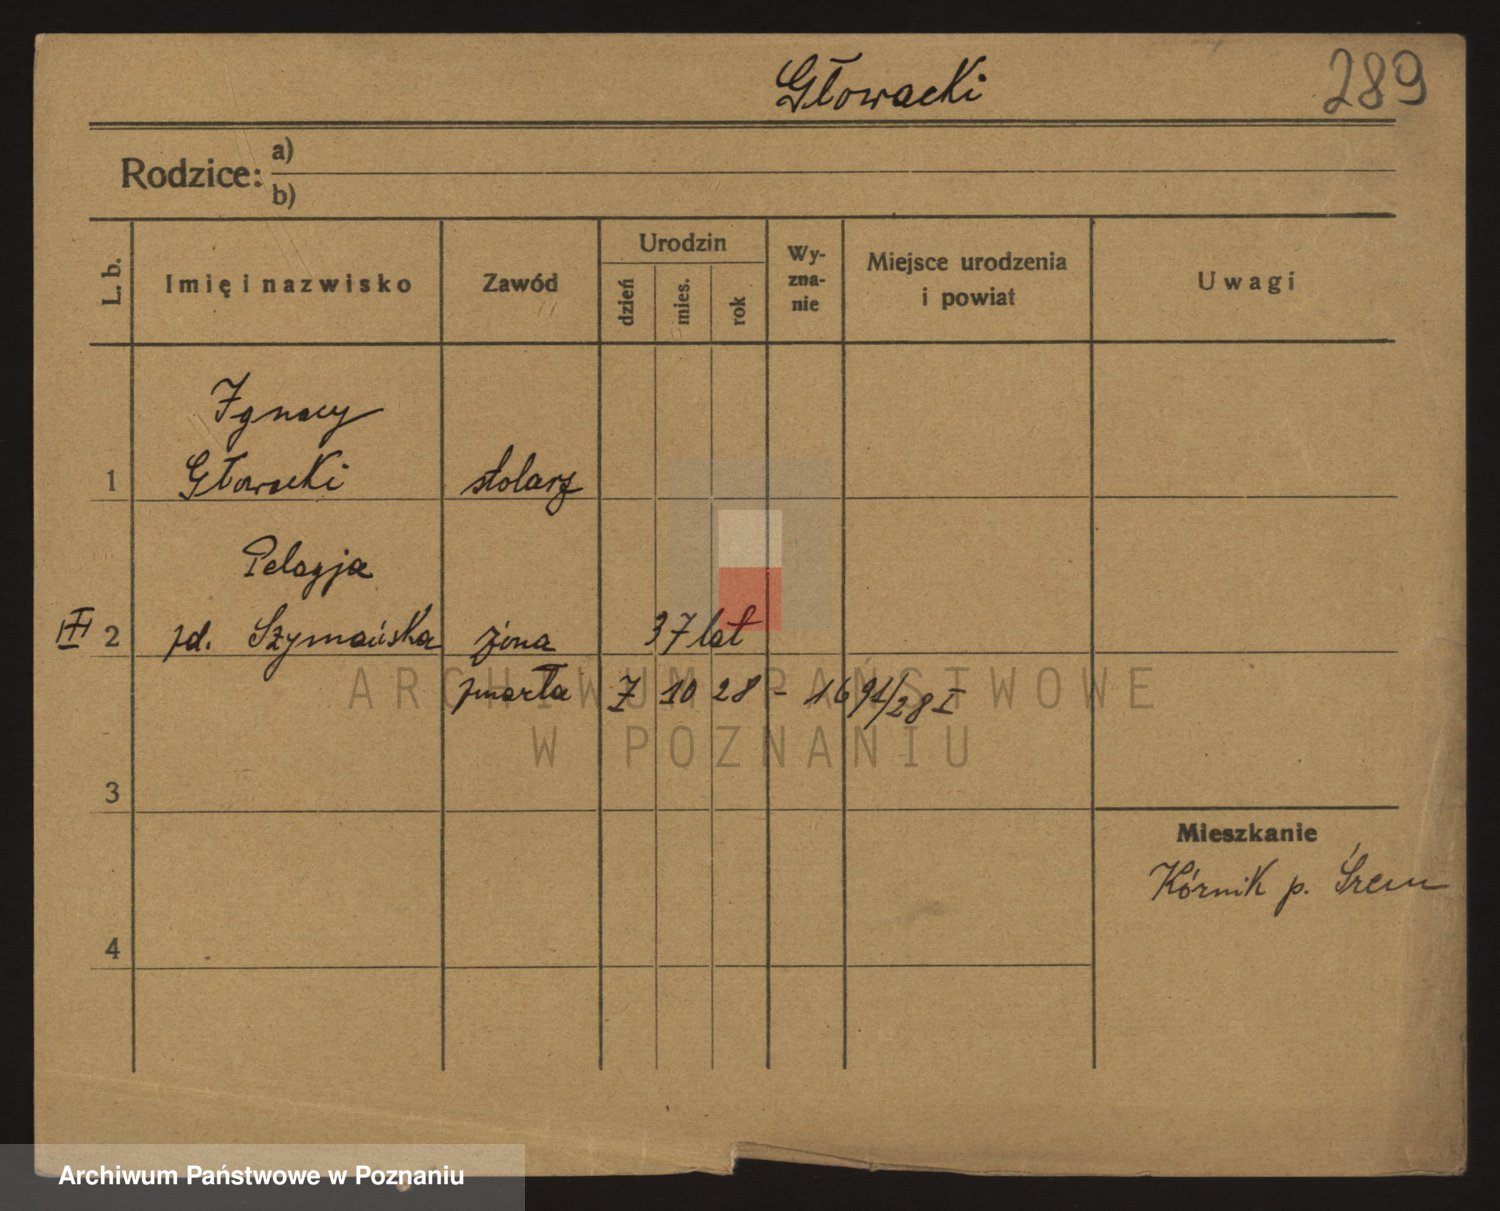 Głowacki 289
Rodzice: a)
b)
L. b. Imię i nazwisko Zawód Urodzin dzień mies. rok Wy-zna-nie Miejsce urodzenia i powiat Uwagi
Ignacy
1 Głowacki stolarz
Pelagja
III 2 zd. Szymańska żona 37 lat
zmarła 7 10 28 - 1691/28 I
ARCHIWUM PAŃSTWOWE
W POZNANIU
3
Mieszkanie
Kórnik p. Śrem
4
Archiwum Państwowe w Poznaniu